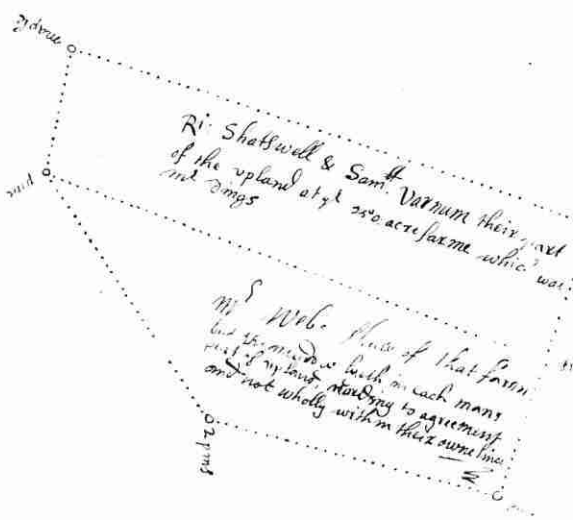 Ri: Shatswell & Samll Varnum their part
of the upland at ye 250 acre farme which was
mr Dings
mr Webs place of that farm
but the meadow lyeth in each mans
part of upland, according to agreement
and not wholly within their owne lines
pine
2 pins